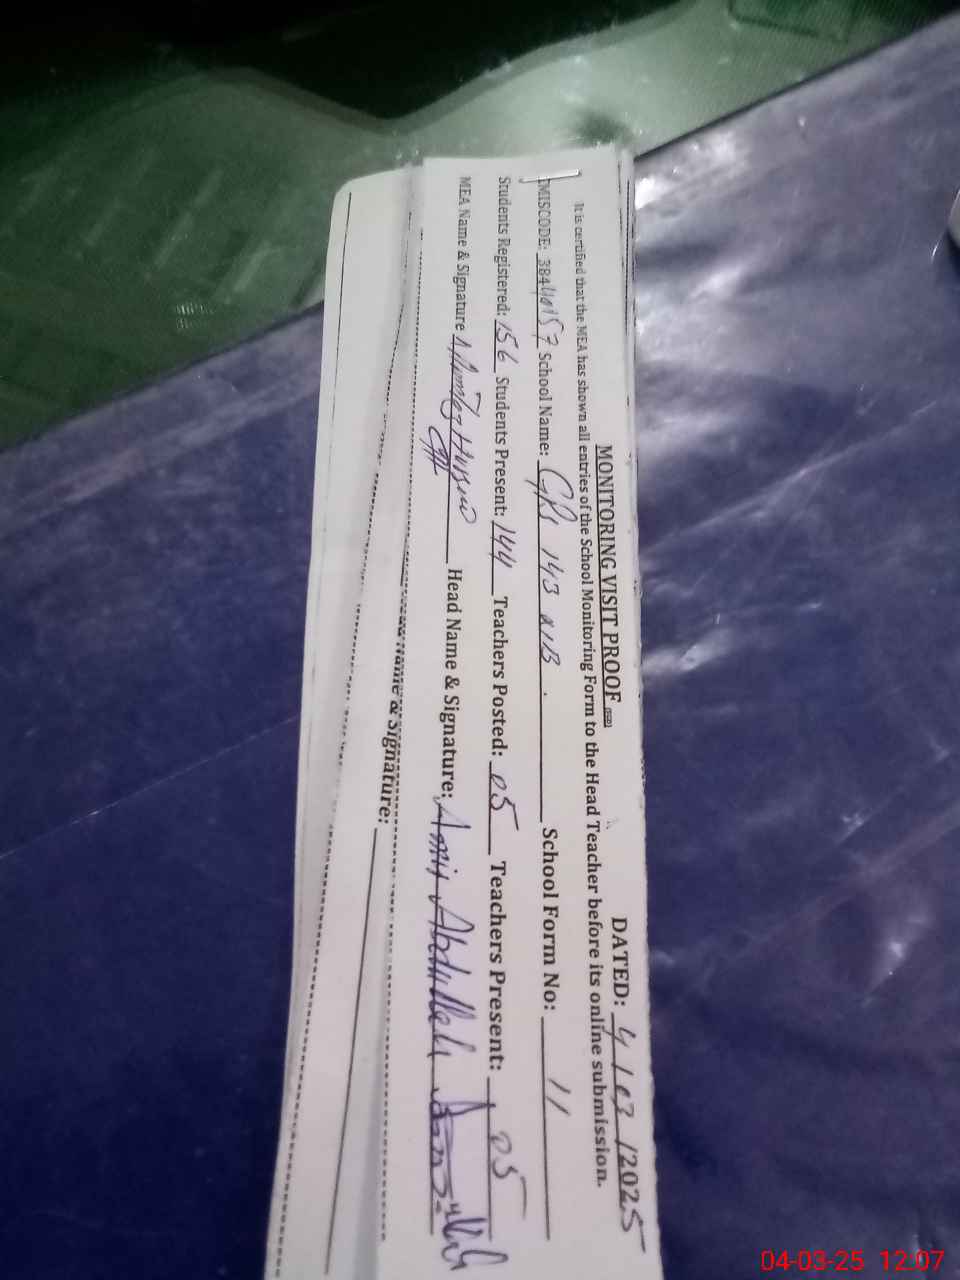 MONITORING VISIT PROOF DATED: 4/03/2025
It is certified that the MEA has shown all entries of the School Monitoring Form to the Head Teacher before its online submission.
EMISCODE: 38440157 School Name: GPS 143 NB. School Form No: 11
Students Registered: 156 Students Present: 144 Teachers Posted: 05 Teachers Present: 05
MEA Name & Signature Hussain Head Name & Signature: Amir Abdullah
Name & Signature:
04-03-25 12:07